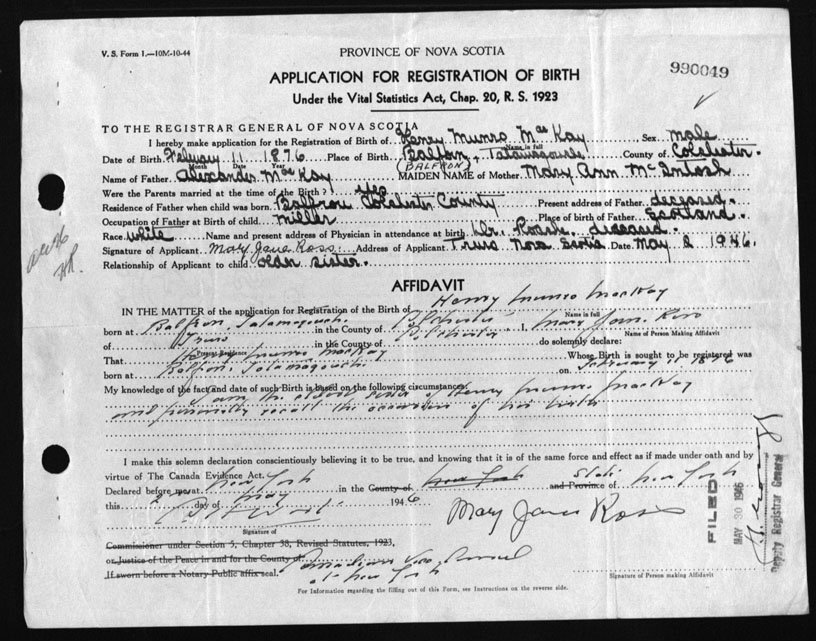 V. S. Form 1.—10M-10-44
PROVINCE OF NOVA SCOTIA
990049
APPLICATION FOR REGISTRATION OF BIRTH
Under the Vital Statistics Act, Chap. 20, R. S. 1923
TO THE REGISTRAR GENERAL OF NOVA SCOTIA
I hereby make application for the Registration of Birth of Henry Munro MacKay Sex male
Name in full
Date of Birth February 11 1876 Place of Birth Balforn, Tatamagouche County of Colchester
Month Date Year (BALFRON)
Name of Father Alexander MacKay MAIDEN NAME of Mother Mary Ann McIntosh
Were the Parents married at the time of the Birth? yes
Residence of Father when child was born Colchester County Present address of Father deceased.
Occupation of Father at Birth of child miller Place of birth of Father Scotland.
Race white Name and present address of Physician in attendance at birth Dr. deceased.
Signature of Applicant Mary Jane Ross Address of Applicant Truro Nova Scotia Date May 8 1946.
Relationship of Applicant to child older sister.
AFFIDAVIT
IN THE MATTER of the application for Registration of the Birth of Henry Munro MacKay
Name in full
born at Balfron, in the County of Colchester I, Mary Jane Ross
Name of Person Making Affidavit
of Truro in the County of Colchester do solemnly declare:
Present Residence
That Henry Munro MacKay Whose Birth is sought to be registered was
born at Balfron, on February 1876
My knowledge of the fact and date of such Birth is based on the following circumstances:
I am the eldest sister of Henry Munro MacKay
and personally recall the occasion of his birth
I make this solemn declaration conscientiously believing it to be true, and knowing that it is of the same force and effect as if made under oath and by
virtue of The Canada Evidence Act.
Declared before me at New York in the County of New York State and Province of New York
this day of May 1946
Mary Jane Ross
Signature of
Commissioner under Section 5, Chapter 38, Revised Statutes, 1923,
or Justice of the Peace in and for the County of Canadian Vice Consul
If sworn before a Notary Public affix seal. at New York
Signature of Person making Affidavit
For Information regarding the filling out of this Form, see Instructions on the reverse side.
FILED
MAY 30 1946
Deputy Registrar General